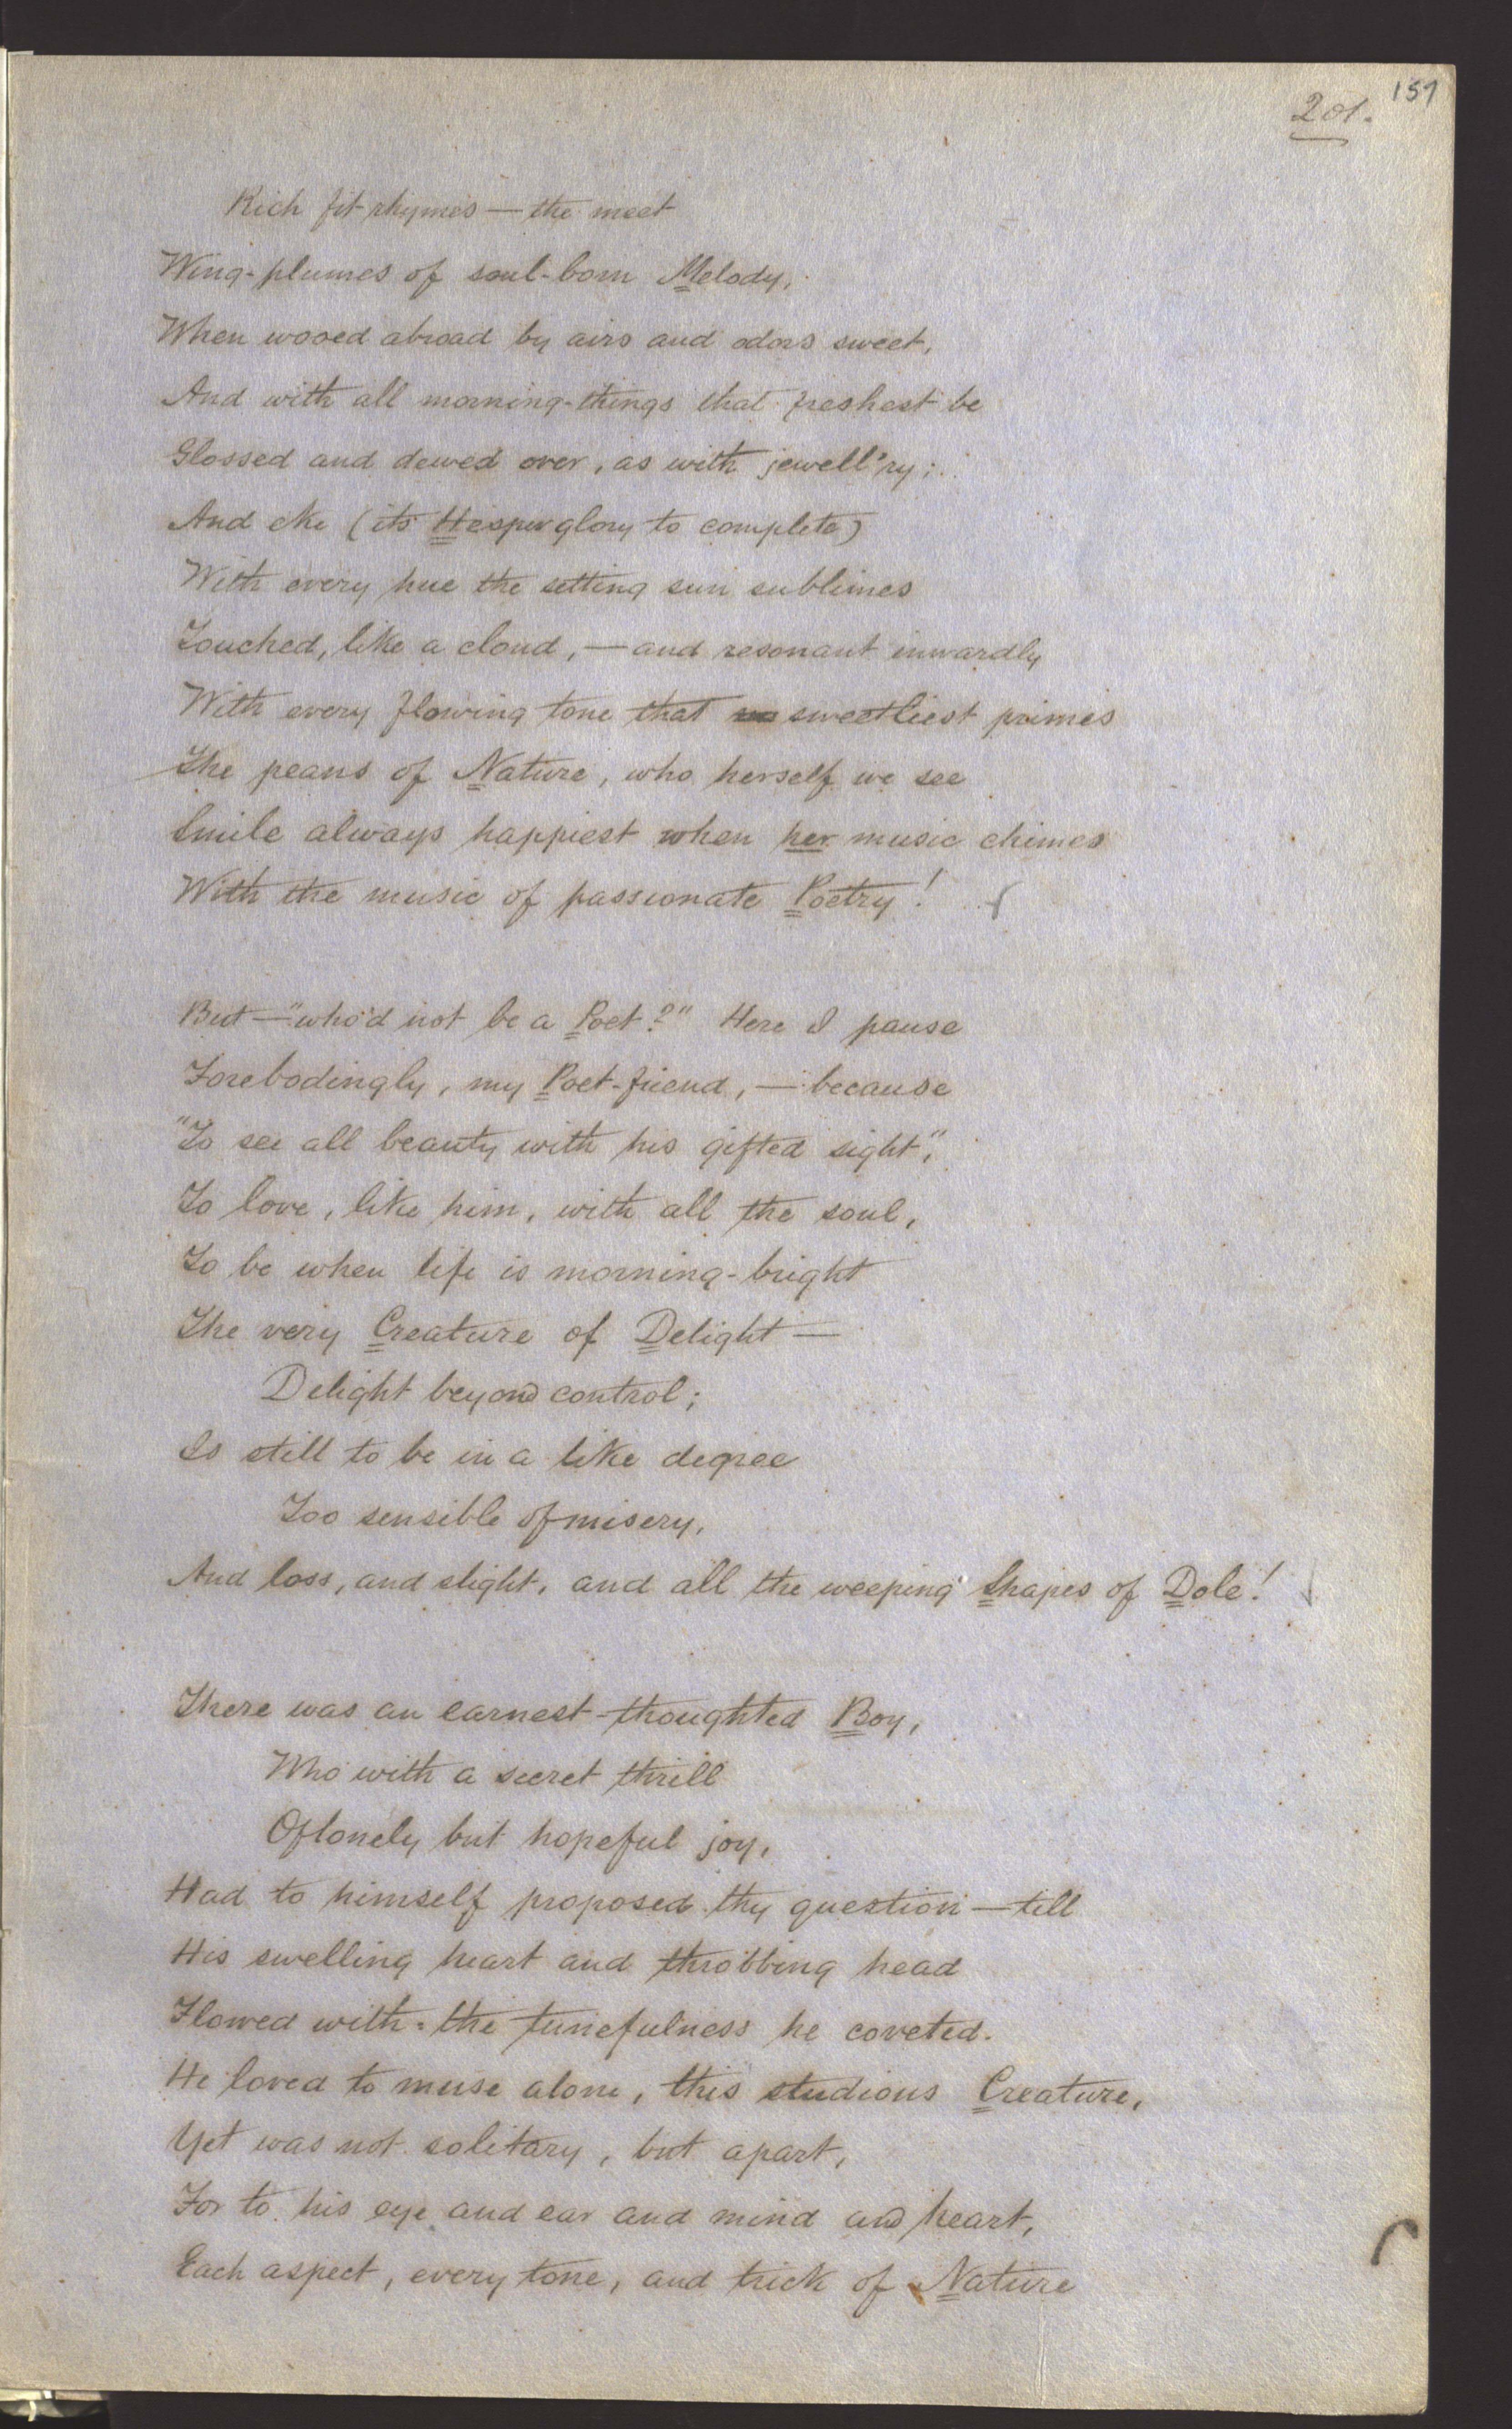 157
201.
Rich fit rhymes — the meet
Wing-plumes of soul-born Melody,
When wooed abroad by airs and odors sweet,
And with all morning-things that freshest be
Glossed and dewed over, as with jewell'ry;
And eke (its Hesper glory to complete)
With every hue the setting sun sublimes
Touched, like a cloud, — and resonant inwardly
With every flowing tone that sweetliest primes
The peans of Nature, who herself we see
Smile always happiest when her music chimes
With the music of passionate Poetry!
But — "who'd not be a Poet?" Here I pause
Forebodingly, my Poet-friend, — because
"To see all beauty with his gifted sight",
To love, like him, with all the soul,
To be when life is morning-bright
The very Creature of Delight —
Delight beyond control;
Is still to be in a like degree
Too sensible of misery,
And loss, and slight, and all the weeping Shapes of Dole!
There was an earnest-thoughted Boy,
Who with a secret thrill
Of lonely but hopeful joy,
Had to himself proposed thy question — till
His swelling heart and throbbing head
Flowed with the tunefulness he coveted.
He loved to muse alone, this studious Creature,
Yet was not solitary, but apart,
For to his eye and ear and mind and heart,
Each aspect, every tone, and trick of Nature